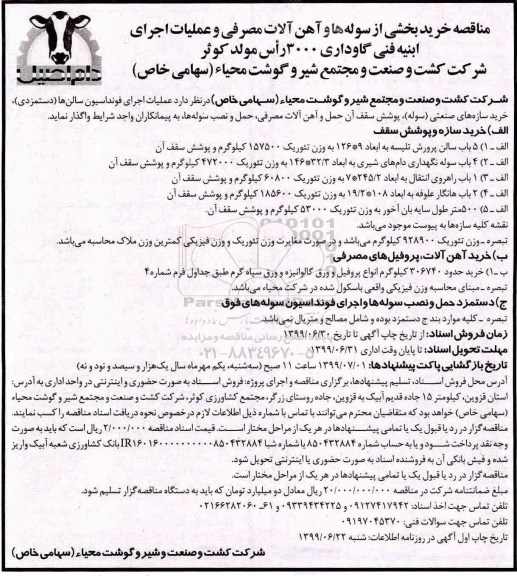 مناقصه خرید بخشی از سوله‌ها و آهن آلات مصرفی و عملیات اجرای
ابنیه فنی گاوداری ۳۰۰۰ رأس مولد کوثر
شرکت کشت و صنعت و مجتمع شیر و گوشت محیاء (سهامی خاص)
دام اصیل
شرکت کشت و صنعت و مجتمع شیر و گوشت محیاء (سهامی خاص) در نظر دارد عملیات اجرای فونداسیون سالن‌ها (دستمزدی)،
خرید سازه‌های صنعتی (سوله)، پوشش سقف آن حمل و آهن آلات مصرفی، حمل و نصب سوله‌ها، به پیمانکاران واجد شرایط واگذار نماید.
الف) خرید سازه و پوشش سقف
الف ـ ۱) ۵ باب سالن پرورش تلیسه به ابعاد ۹*۱۲۶ به وزن تئوریک ۱۵۷۵۰۰ کیلوگرم و پوشش سقف آن
الف ـ ۲) ۴ باب سوله نگهداری دام‌های شیری به ابعاد ۳۲/۳*۱۴۶ به وزن تئوریک ۴۷۲۰۰۰ کیلوگرم و پوشش سقف آن
الف ـ ۳) ۱ باب راهروی انتقال به ابعاد ۲۴۵/۲*۷ به وزن تئوریک ۶۰۸۰۰ کیلوگرم و پوشش سقف آن
الف ـ ۴) ۲ باب هانگار علوفه به ابعاد ۱۰۸*۱۹/۲ به وزن تئوریک ۱۸۵۶۰۰ کیلوگرم و پوشش سقف آن
الف ـ ۵) ۵۰۰ متر طول سایه بان آخور به وزن تئوریک ۵۳۰۰۰ کیلوگرم و پوشش سقف آن.
نقشه کلیه سازه‌ها به پیوست موجود می‌باشد.
تبصره ـ وزن تئوریک ۹۲۸۹۰۰ کیلوگرم می‌باشد و در صورت مغایرت وزن تئوریک و وزن فیزیکی کمترین وزن ملاک محاسبه می‌باشد.
ب) خرید آهن آلات، پروفیل‌های مصرفی:
ب ـ ۱) خرید حدود ۳۰۶۷۴۰ کیلوگرم انواع پروفیل و ورق گالوانیزه و ورق سیاه گرم طبق جداول فرم شماره ۴
تبصره ـ مبنای محاسبه وزن فیزیکی واقعی باسکول شده در شرکت محیاء می‌باشد.
ج) دستمزد حمل و نصب سوله‌ها و اجرای فونداسیون سوله‌های فوق
تبصره ـ کلیه موارد بند ج دستمزد بوده و شامل مصالح و متریال نمی‌باشد.
زمان فروش اسناد: از تاریخ چاپ آگهی تا تاریخ ۱۳۹۹/۰۶/۳۰
مهلت تحویل اسناد: تا پایان وقت اداری ۱۳۹۹/۰۶/۳۱
تاریخ بازگشایی پاکت پیشنهادها: ۱۳۹۹/۰۷/۰۱ ساعت ۱۱ صبح (سه‌شنبه، یکم مهرماه سال یک‌هزار و سیصد و نود و نه)
آدرس محل فروش اسناد، تسلیم پیشنهادها، برگزاری مناقصه و اجرای پروژه: فروش اسناد به صورت حضوری و اینترنتی در واحد اداری به آدرس:
استان قزوین، کیلومتر ۱۵ جاده قدیم آبیک به قزوین، جاده روستای زرگر، مجتمع کشاورزی کوثر، شرکت کشت و صنعت و مجتمع شیر و گوشت محیاء
(سهامی خاص) خواهد بود که متقاضیان محترم می‌توانند با تماس با شماره ذیل اطلاعات لازم در خصوص نحوه دریافت اسناد مناقصه را کسب نمایند.
مناقصه‌گزار در رد یا قبول یک یا تمامی پیشنهادها در هر یک از مراحل مختار است. قیمت اسناد مناقصه ۲/۰۰۰/۰۰۰ ریال است که باید به صورت
وجه نقد پرداخت شود و یا به حساب شماره ۸۵۰۴۳۲۸۸۴ یا شماره شبا IR۱۶۰۱۶۰۰۰۰۰۰۰۰۰۰۰۸۵۰۴۳۲۸۸۴ بانک کشاورزی شعبه آبیک واریز
شده و فیش بانکی آن به فروشنده اسناد به صورت حضوری یا اینترنتی تحویل شود.
مناقصه‌گزار در رد یا قبول یک یا تمامی پیشنهادها در هر یک از مراحل مختار است.
مبلغ ضمانتنامه شرکت در مناقصه ۲۰/۰۰۰/۰۰۰/۰۰۰ ریال معادل دو میلیارد تومان که باید به دستگاه مناقصه‌گزار تسلیم شود.
تلفن تماس جهت اخذ اسناد: ۰۹۱۲۷۴۱۷۹۴۲ و ۰۹۳۳۹۴۳۴۲۲۵ و ۶۱ـ۰۲۱۶۶۲۸۲۰۶۰
تلفن تماس جهت سوالات فنی: ۰۹۱۹۷۰۴۵۳۷۰
تاریخ چاپ اول آگهی در روزنامه اطلاعات: شنبه ۱۳۹۹/۰۶/۲۲
شرکت کشت و صنعت و شیر و گوشت محیاء (سهامی خاص)